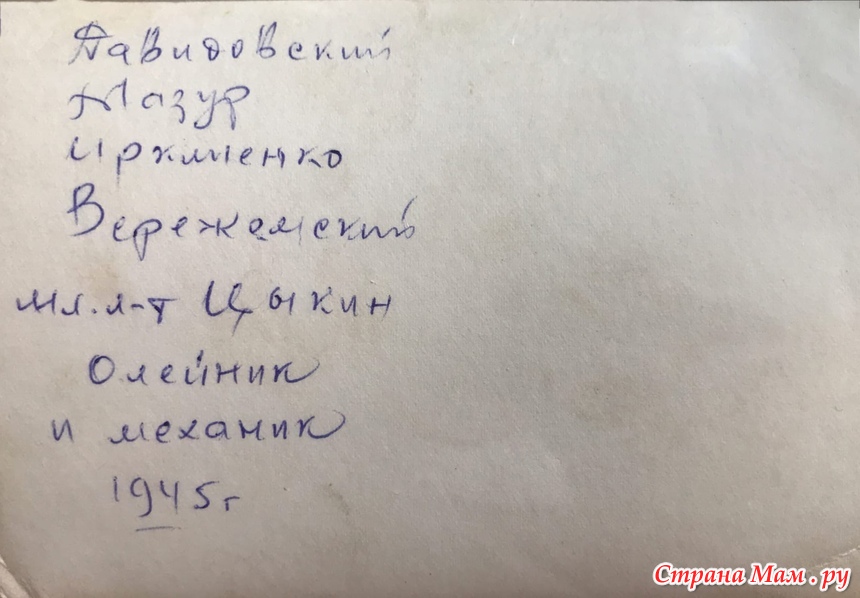 Давидовский
Мазур
Иркиленко
Вережамский
мл. л-т Цыкин
Олейник
и механик
1945г
Страна Мам.ру